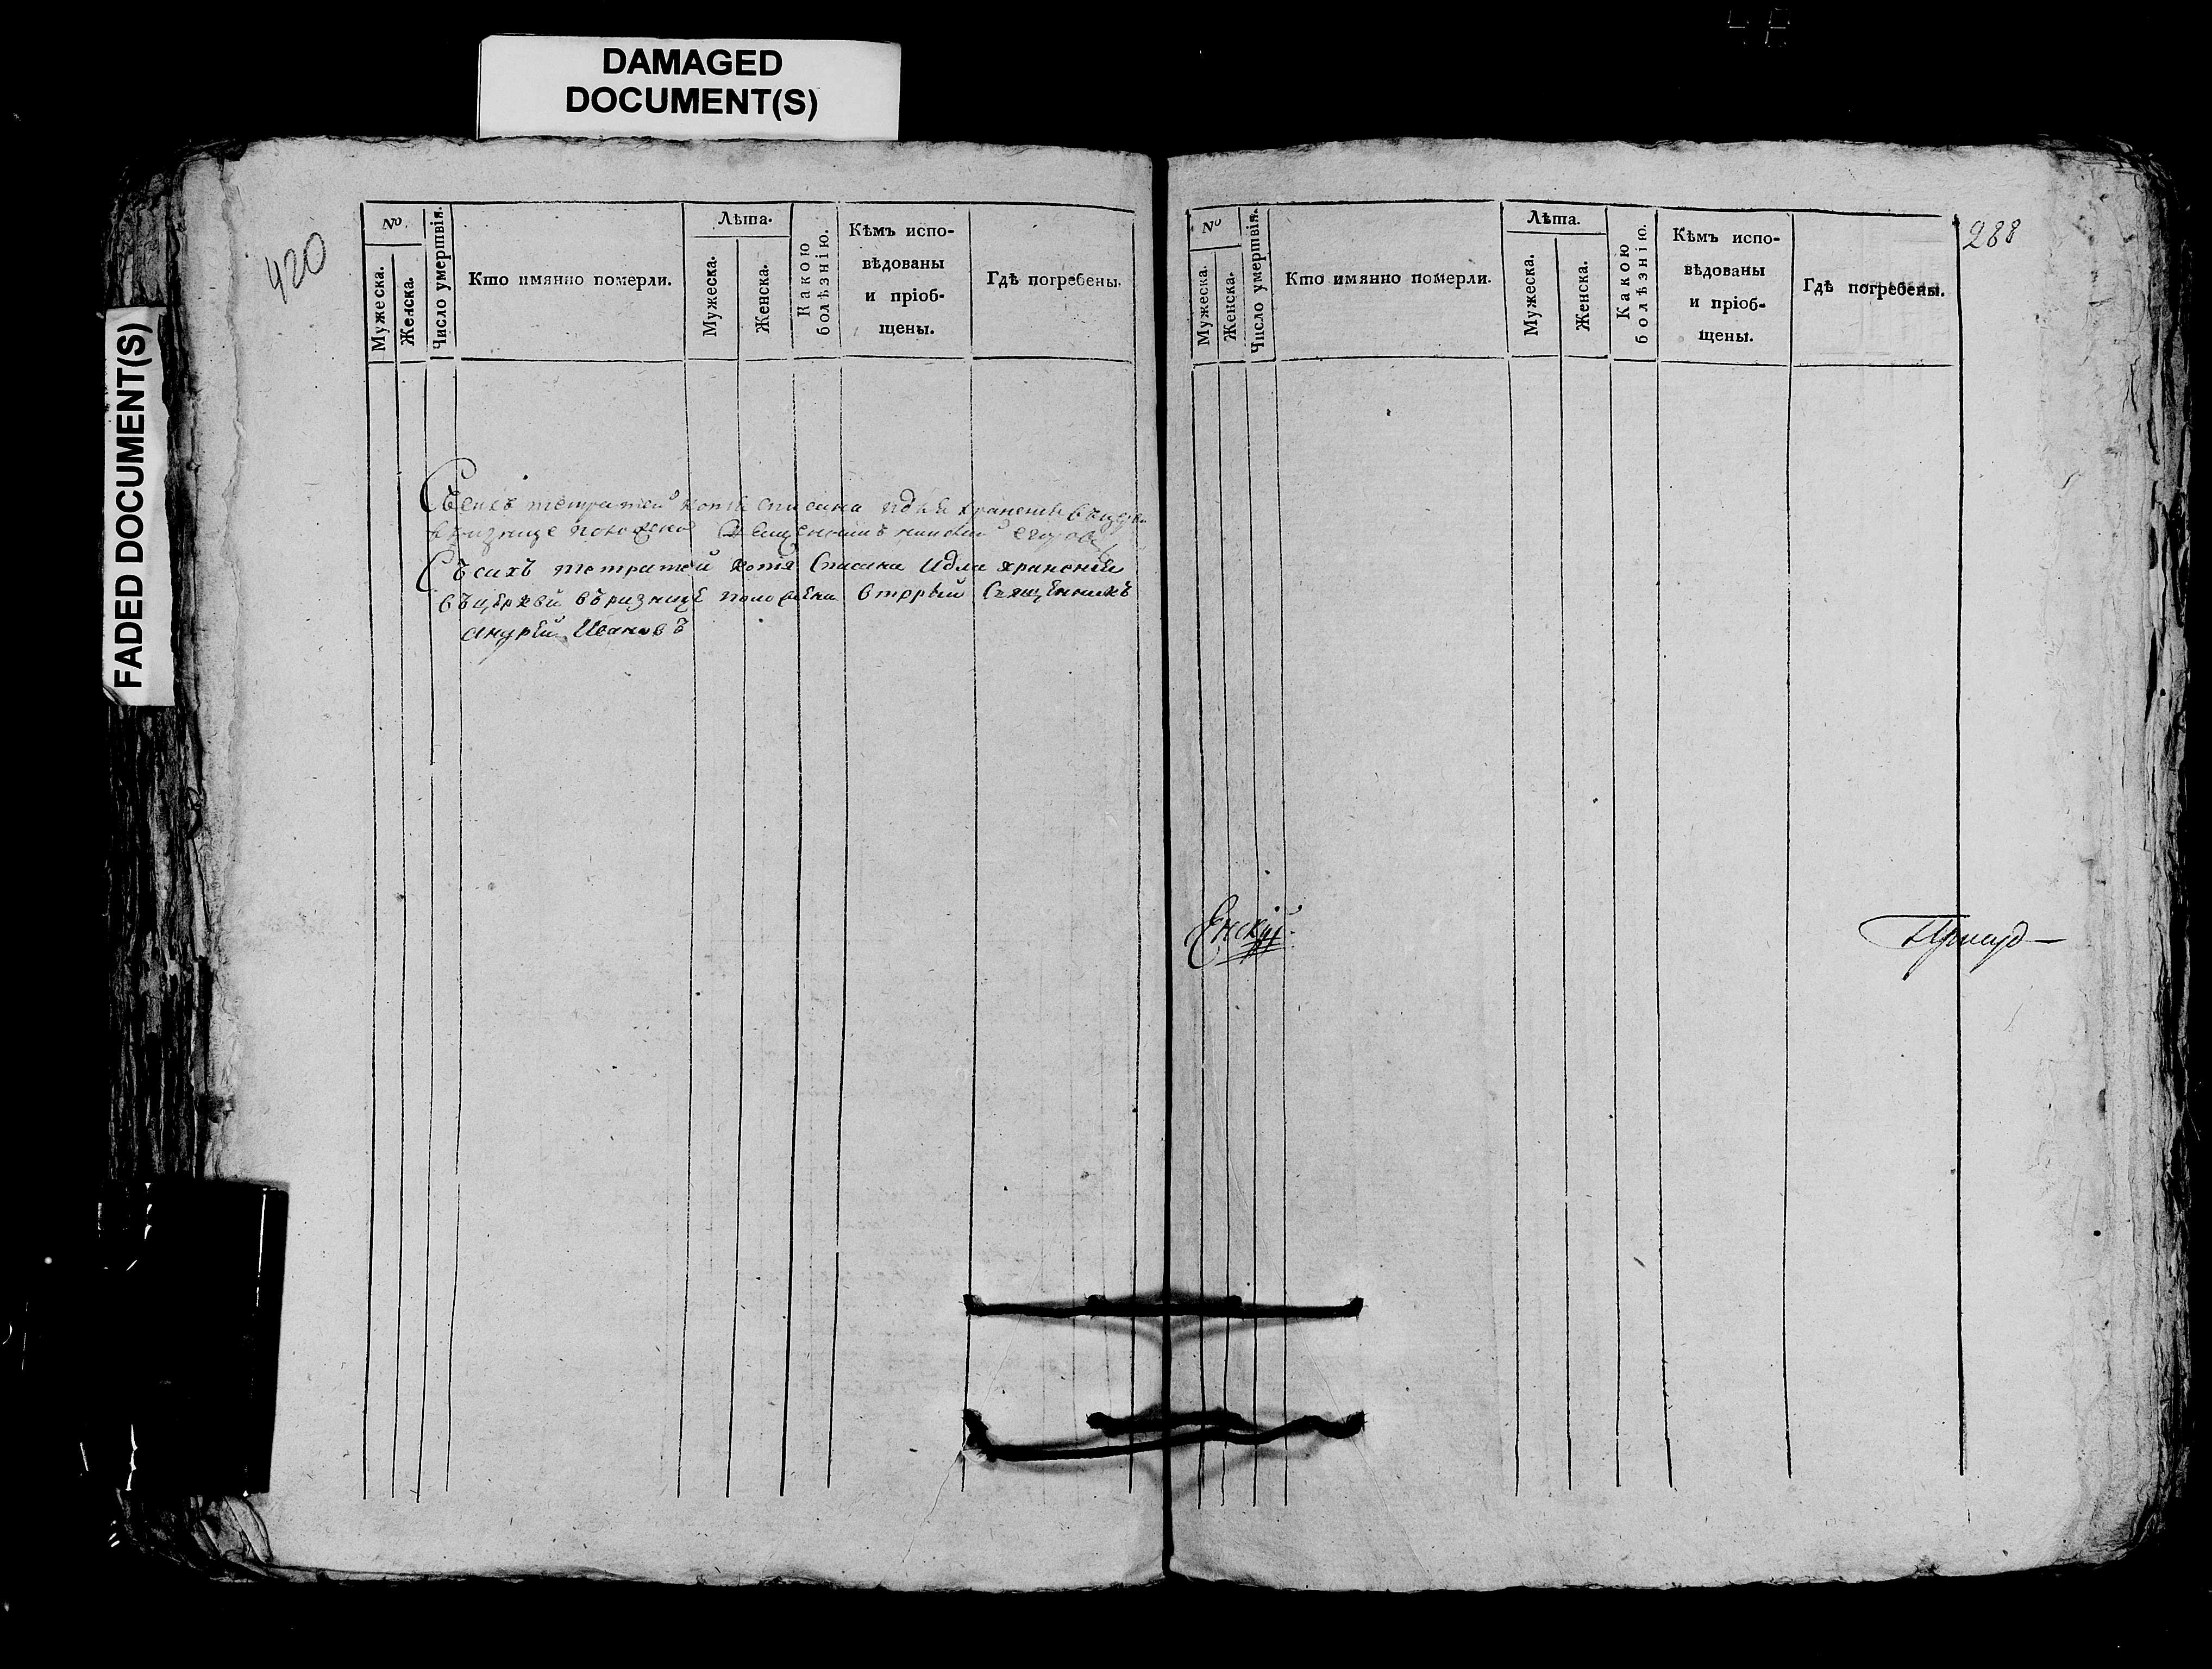 DAMAGED
DOCUMENT(S)
FADED DOCUMENT(S)
420
№
Мужеска.
Женска.
Число умертвія.
Кто имянно померли.
Лѣта.
Мужеска.
Женска.
Какою
болѣзнію.
Кѣмъ испо-
вѣдованы
и пріоб-
щены.
Гдѣ погребены.
Съ сихъ тетратей копія списана и для хранения въ церкви
в ризнице положена Священникъ
Съ сихъ тетратей копія списана и для хранения
въ церкви въ ризнице положена вторый Священникъ
Андрей Ивановъ
288
№
Мужеска.
Женска.
Число умертвія.
Кто имянно померли.
Лѣта.
Мужеска.
Женска.
Какою
болѣзнію.
Кѣмъ испо-
вѣдованы
и пріоб-
щены.
Гдѣ погребены.
Енскій